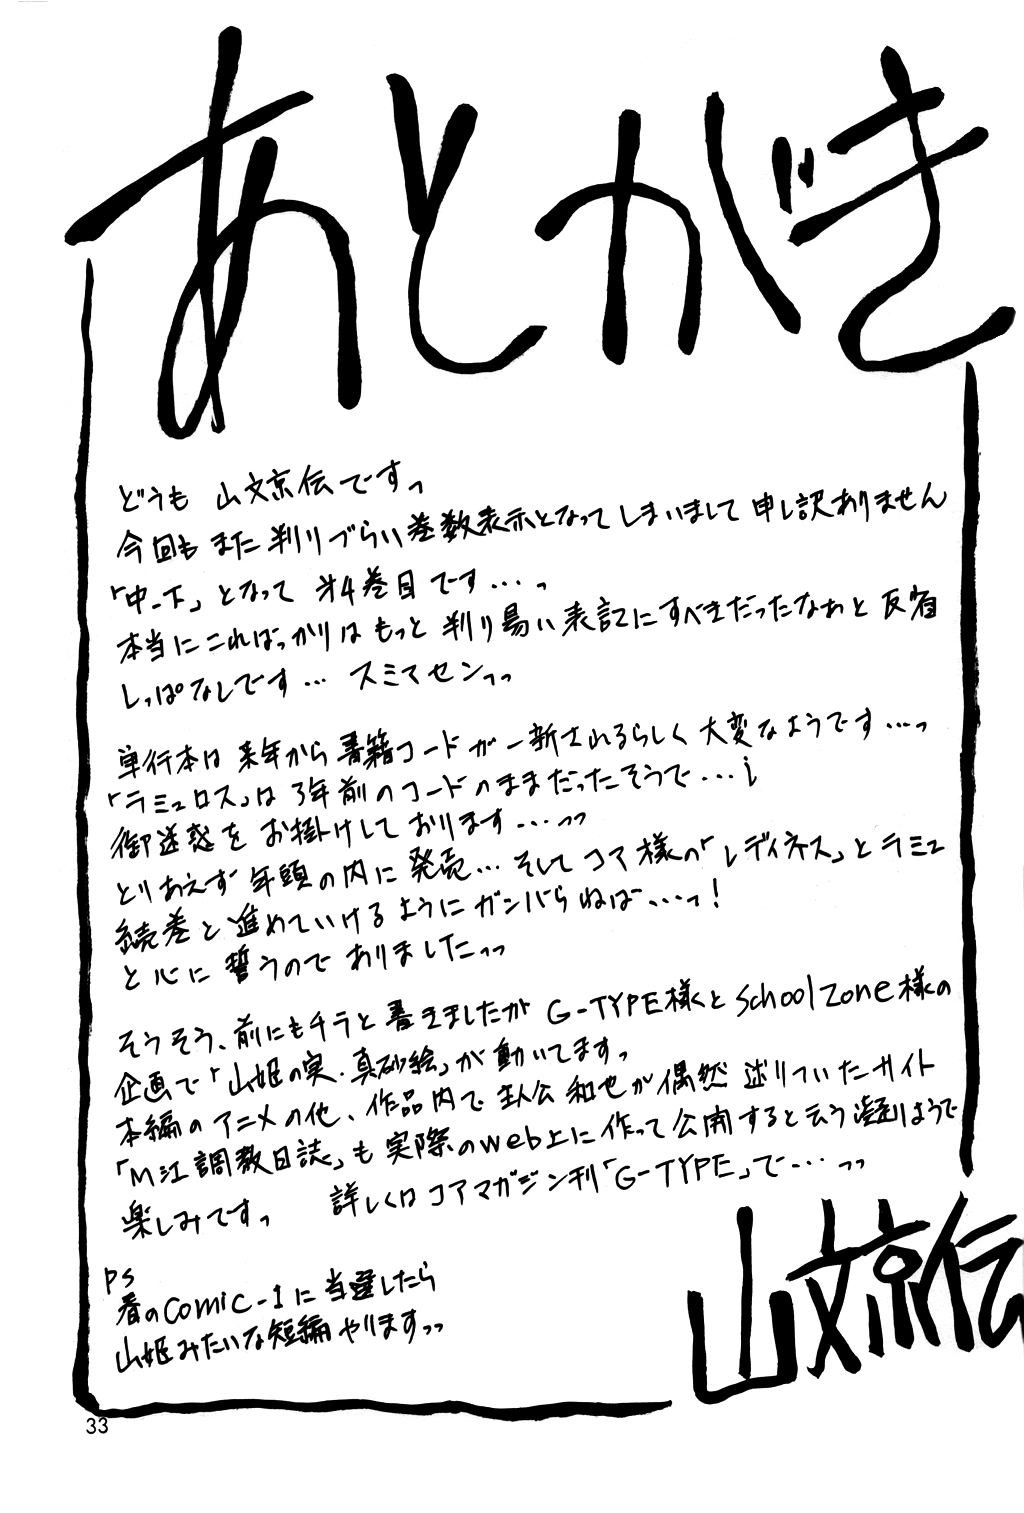 あとがき
どうも 山文京伝ですっ
今回も また 判りづらい巻数表示となってしまいまして 申し訳ありません
「中-下」となって 才4巻目です…っ
本当にこればっかりは もっと 判り易い表記にすべきだったなぁと 反省
しっぱなしです… スミマセンっっ
単行本は 来年から 書籍コードが一新されるらしく 大変なようです…っ
「ラミュロス」は 3年前のコードのままだったそうで…;
御迷惑を お掛けしております…っっ
とりあえず 年頭の内に発売… そして コア様の「レディネス」とラミュ
続巻と 進めていけるようにガンバらねば…っ!
と心に 誓うので ありましたっっ
そうそう、前にもチラと書きましたが G-TYPE様とschoolzone様の
企画で「山姫の実・真砂絵」が動いてますっ
本編のアニメの他、作品内で 主人公 和也が偶然 辿りついたサイト
「M江調教日誌」も 実際のweb上に作って公開すると云う凝りようで
楽しみですっ 詳しくは コアマガジン刊「G-TYPE」で…っっ
PS
春のComic-1に当選したら
山姫みたいな短編やりますっっ
山文京伝
33